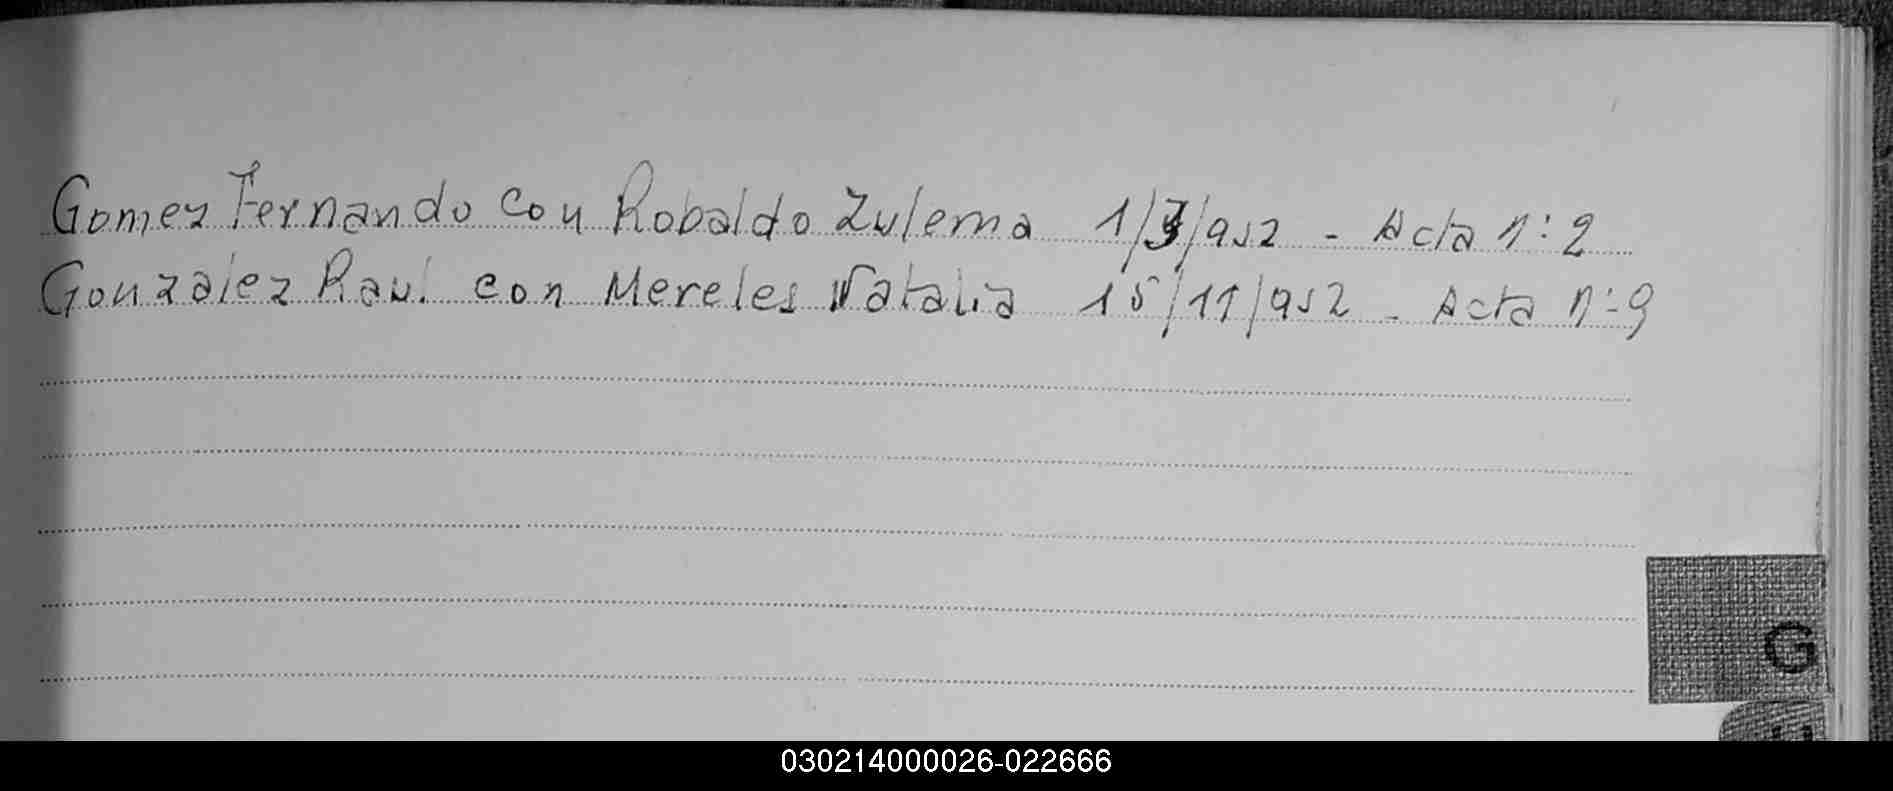 Gomez Fernando con Robaldo Zulema 1/3/952 - Acta n: 2
Gonzalez Raul con Mereles Natalia 15/11/952 - Acta n: 9
G
030214000026-022666